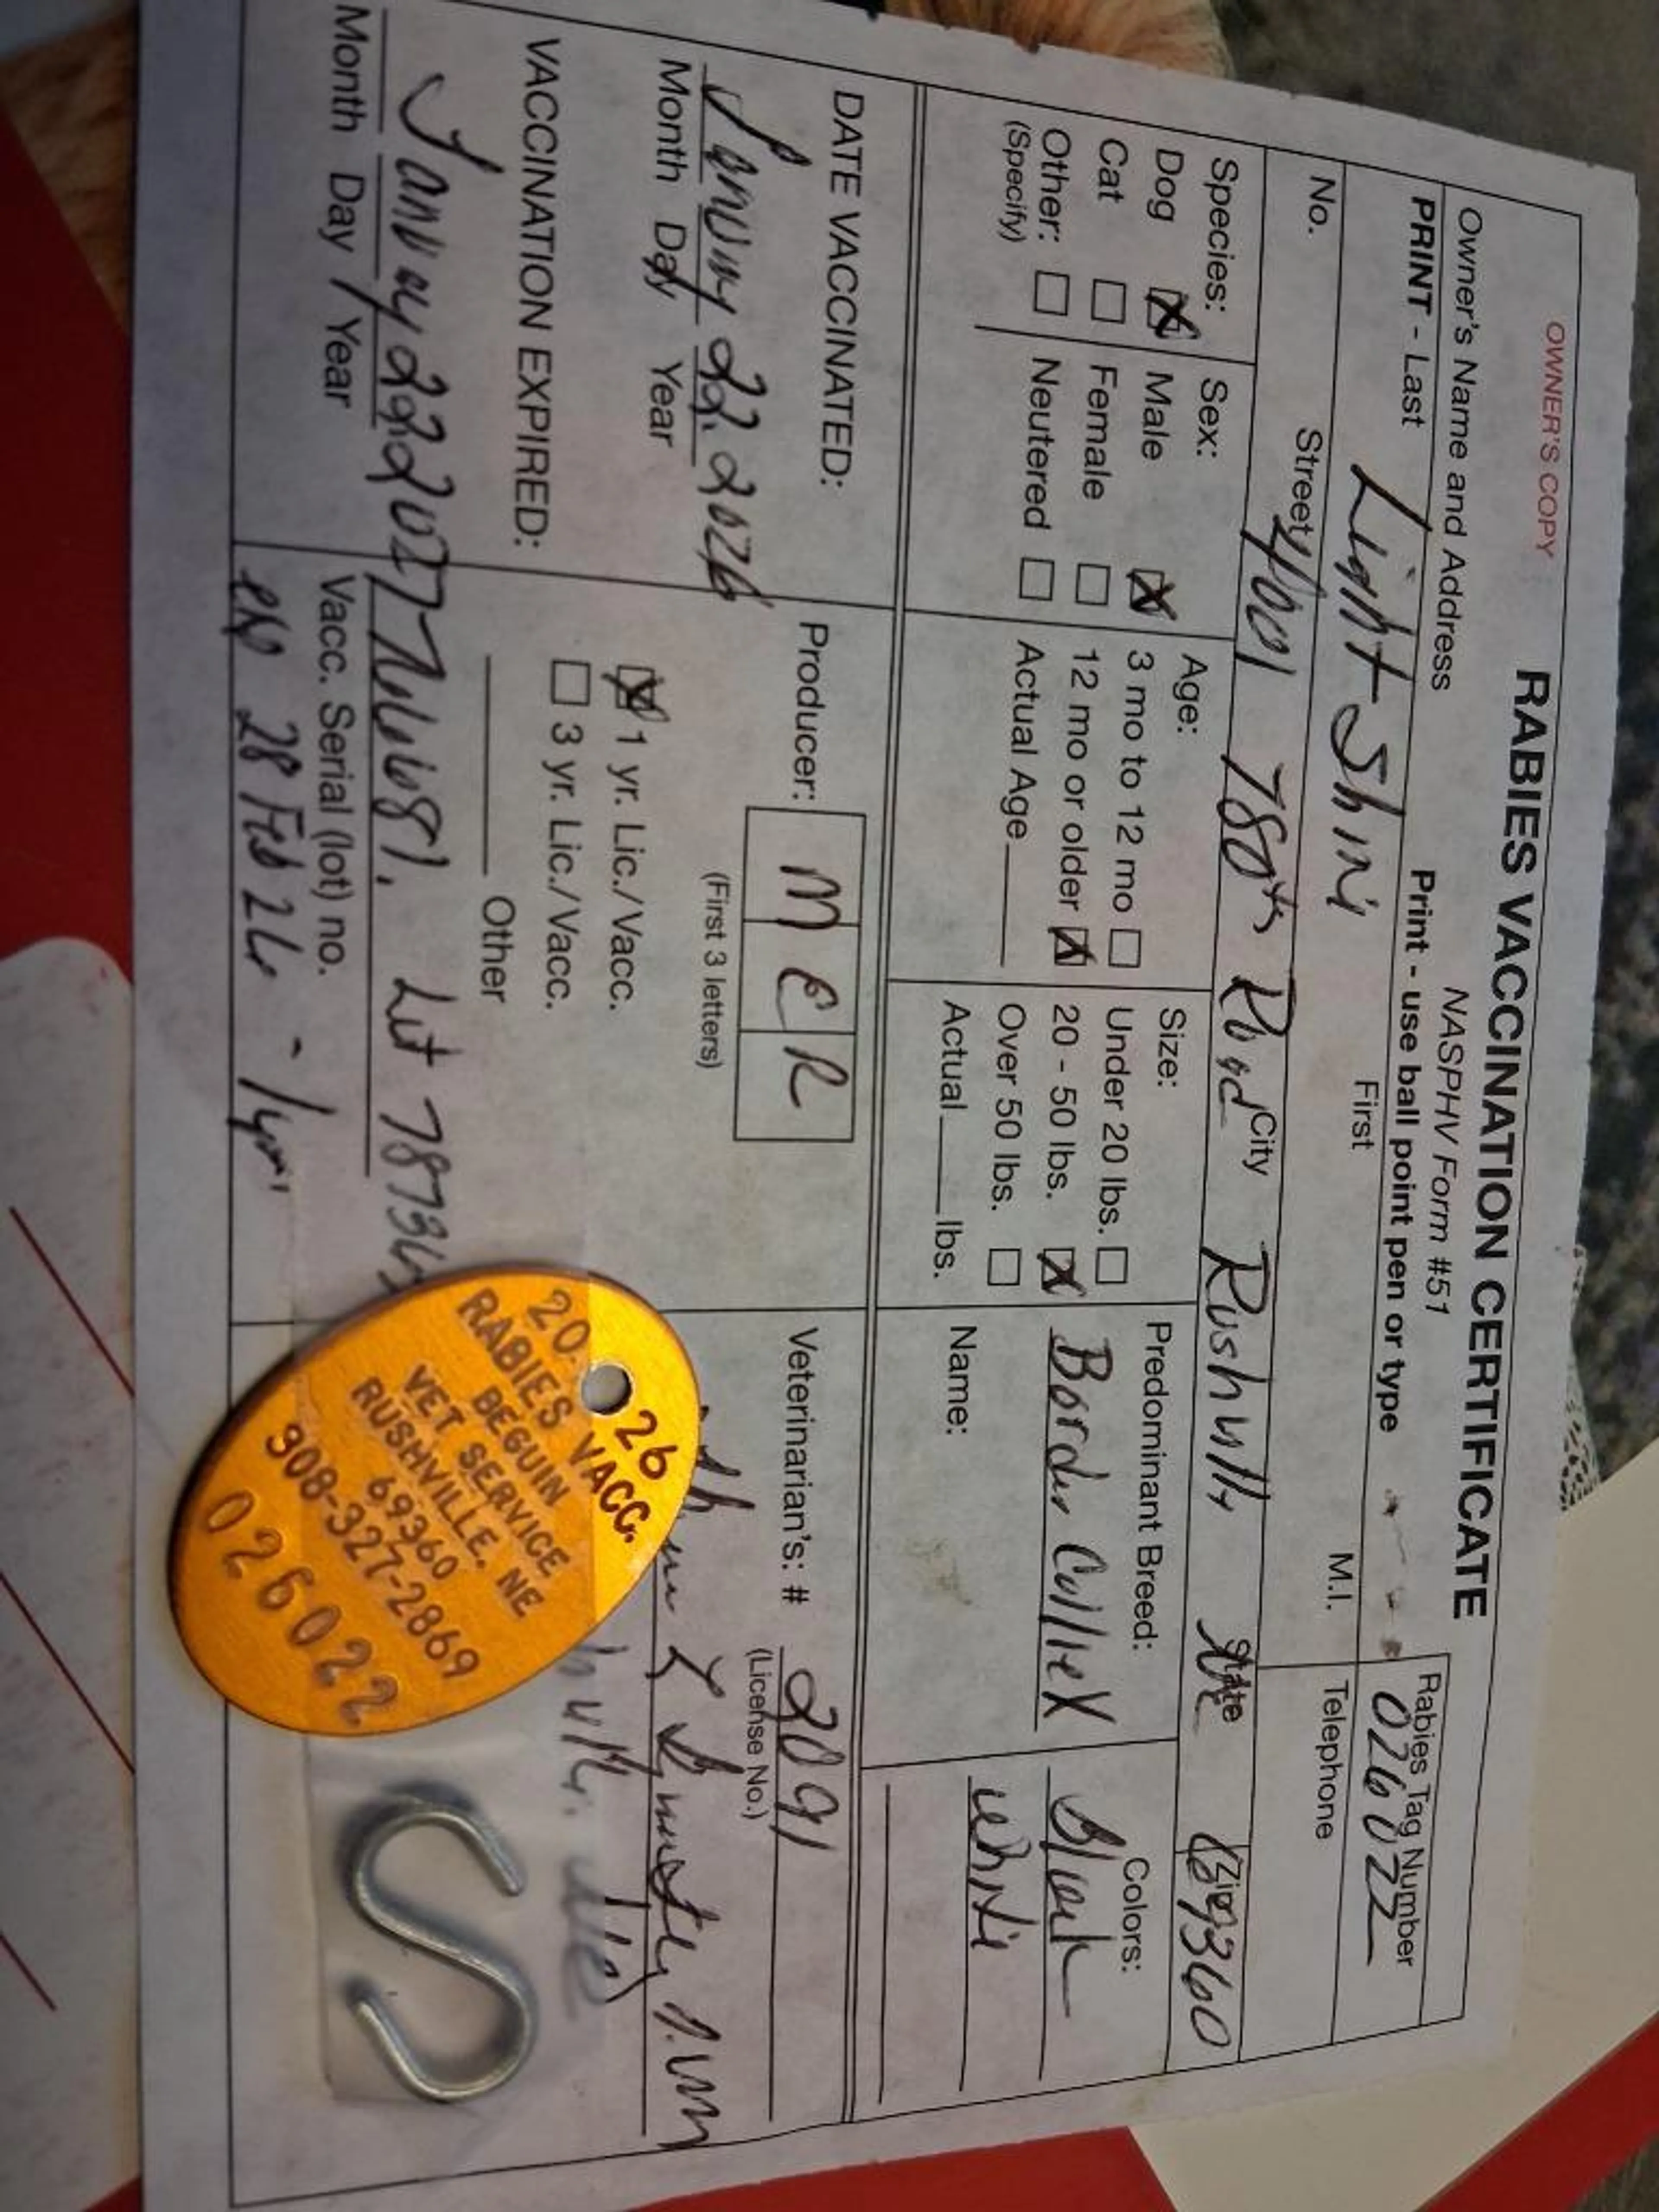 OWNER'S COPY
RABIES VACCINATION CERTIFICATE
NASPHV Form #51
Owner's Name and Address
Print - use ball point pen or type
Rabies Tag Number
026022
PRINT - Last
Light
First
M.I.
Telephone
No.
Street
4001 78th Road
City
State
Zip
69360
Species:
Dog
Cat
Other:
(Specify)
Sex:
Male
Female
Neutered
Age:
3 mo to 12 mo
12 mo or older
Actual Age
Size:
Under 20 lbs.
20 - 50 lbs.
Over 50 lbs.
Actual lbs.
Predominant Breed:
Border Collie X
Name:
Colors:
Black
White
DATE VACCINATED:
January 22 2026
Month Day Year
VACCINATION EXPIRED:
January 22 2027
Month Day / Year
Producer:
M E R
(First 3 letters)
1 yr. Lic./Vacc.
3 yr. Lic./Vacc.
Other
Vacc. Serial (lot) no.
28 Feb 26 - 1yr
Veterinarian's: # 2091
(License No.)
2026
RABIES VACC.
BEGUIN
VET SERVICE
RUSHVILLE, NE
69360
308-327-2869
026022